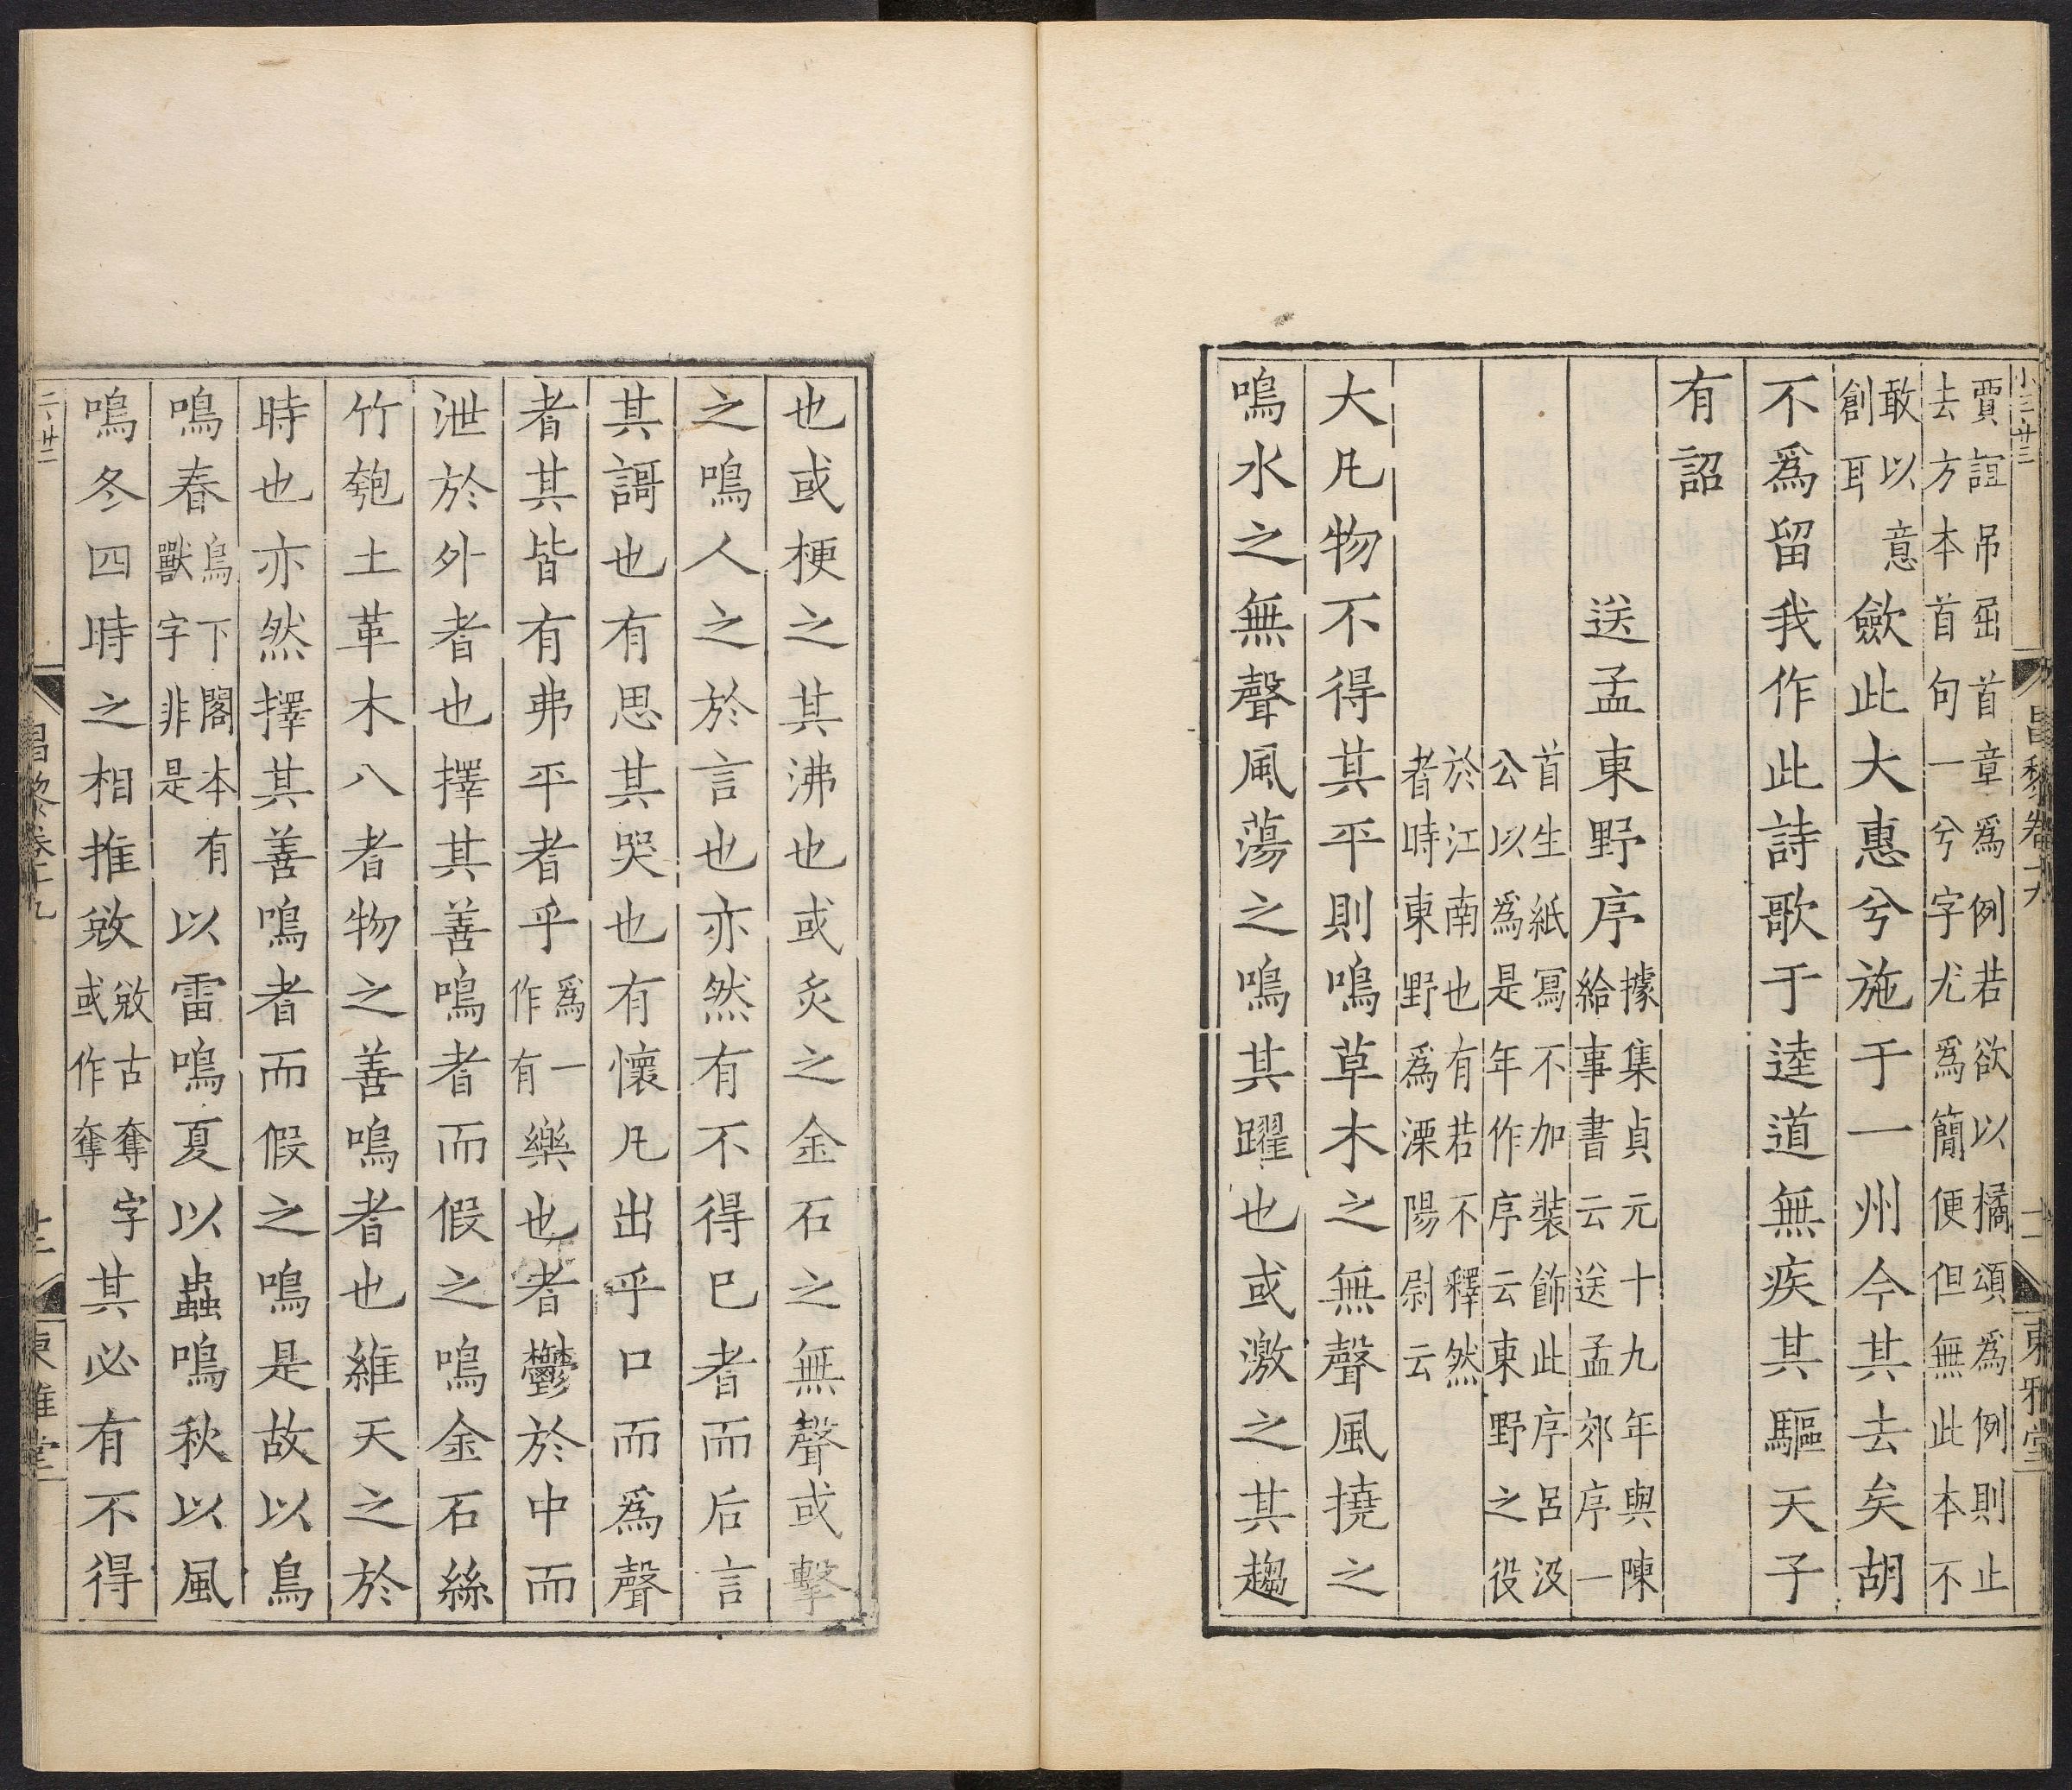 小三廿三 昌黎卷十九 十一 東雅堂
賈誼吊屈首章爲例若欲以橘頌爲例則止
去方本首句一兮字尤爲簡便但無此本不
敢以意
創耳
歛此大惠兮施于一州今其去矣胡
不爲留我作此詩歌于逵道無疾其驅天子
有詔
送孟東野序
據集貞元十九年與陳
給事書云送孟郊序一
首生紙冩不加裝飾此序呂汲
公以爲是年作序云東野之役
於江南也有若不釋然
者時東野爲溧陽尉云
大凡物不得其平則鳴草木之無聲風撓之
鳴水之無聲風蕩之鳴其躍也或激之其趨
也或梗之其沸也或炙之金石之無聲或擊
之鳴人之於言也亦然有不得已者而后言
其謌也有思其哭也有懷凡出乎口而爲聲
者其皆有弗平者乎
爲一
作有
樂也者鬱於中而
泄於外者也擇其善鳴者而假之鳴金石絲
竹匏土革木八者物之善鳴者也維天之於
時也亦然擇其善鳴者而假之鳴是故以鳥
鳴春
鳥下閣本有
獸字非是
以雷鳴夏以蟲鳴秋以風
鳴冬四時之相推敚
敚古奪字
或作奪
其必有不得
二廿二 昌黎卷十九 十二 東雅堂